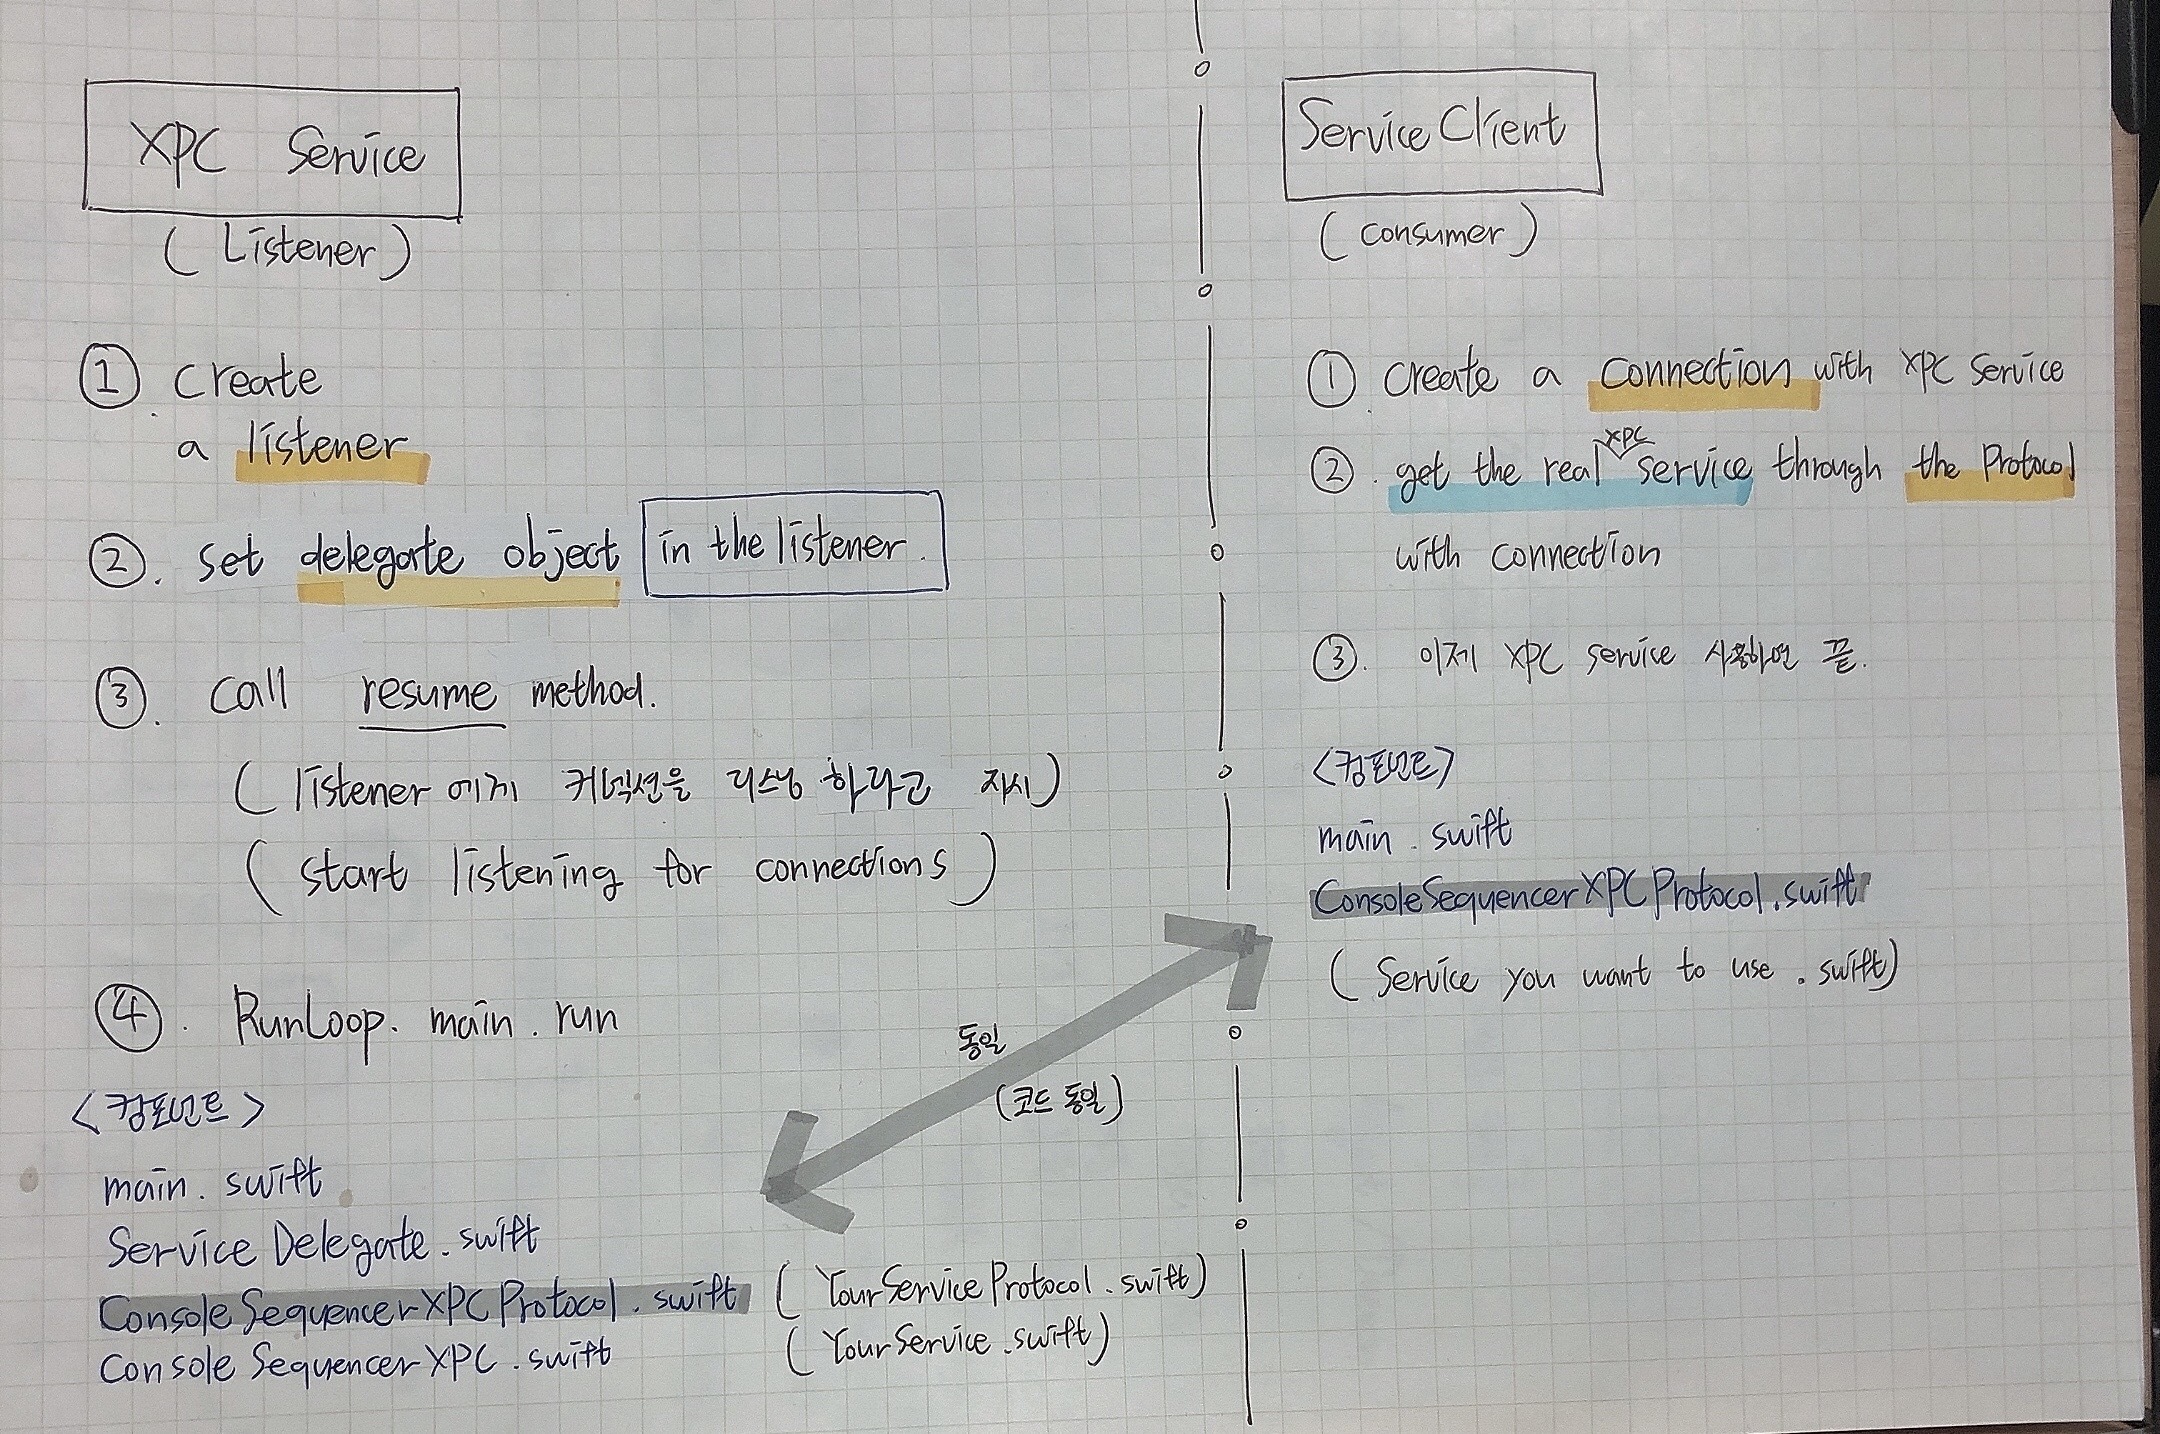 XPC Service
(Listener)
① Create
a listener
②. set delegate object in the listener.
③. call resume method.
(listener에게 커넥션을 리스닝 하라고 지시)
(start listening for connections)
④. RunLoop. main. run
<컴포넌트>
main. swift
Service Delegate. swift
Console Sequencer XPC Protocol. swift (YourServiceProtocol. swift)
Console Sequencer XPC. swift (YourService. swift)
동일
(코드 동일)
Service Client
(consumer)
①. create a connection with XPC Service
②. get the real XPC service through the Protocol
with connection
③. 이제 XPC service 사용하면 끝.
<컴포넌트>
main. swift
ConsoleSequencerXPCProtocol.swift
(Service you want to use. swift)